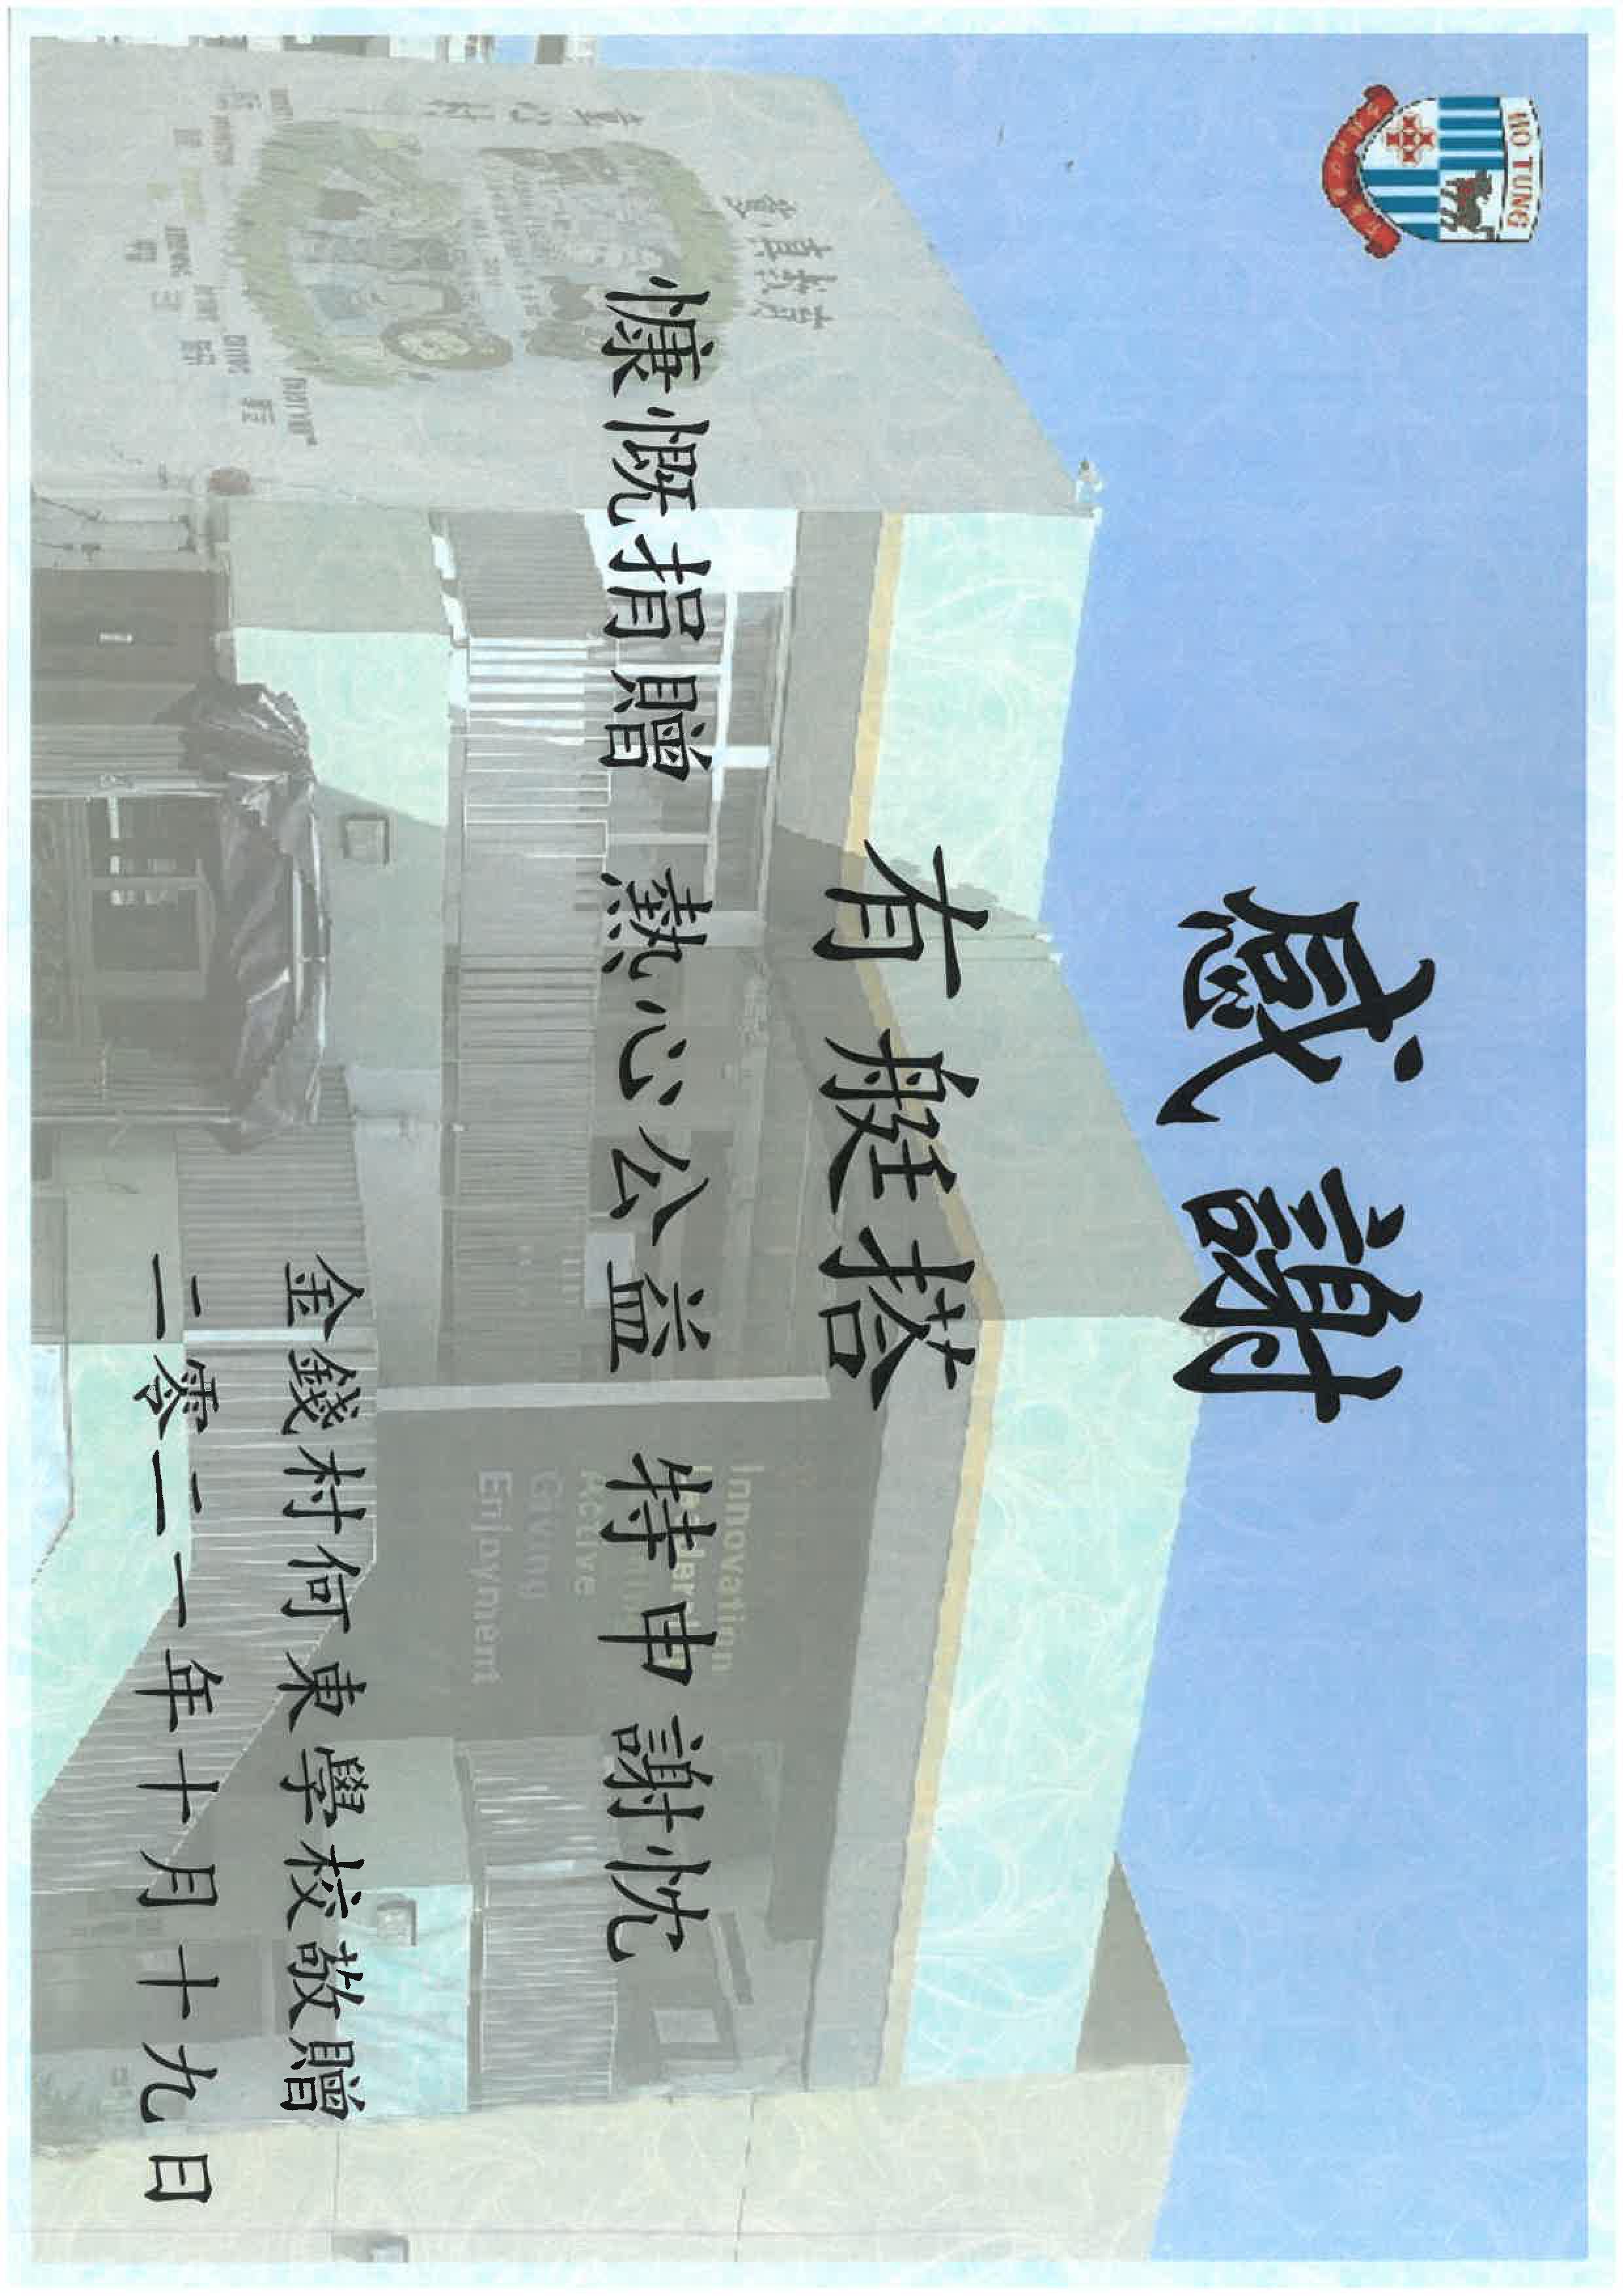 HO TUNG
感謝
有艇搭
慷慨捐贈 熱心公益 特申謝忱
Innovation
Active
Giving
Enjoyment
金錢村何東學校敬贈
二零二一年十月十九日